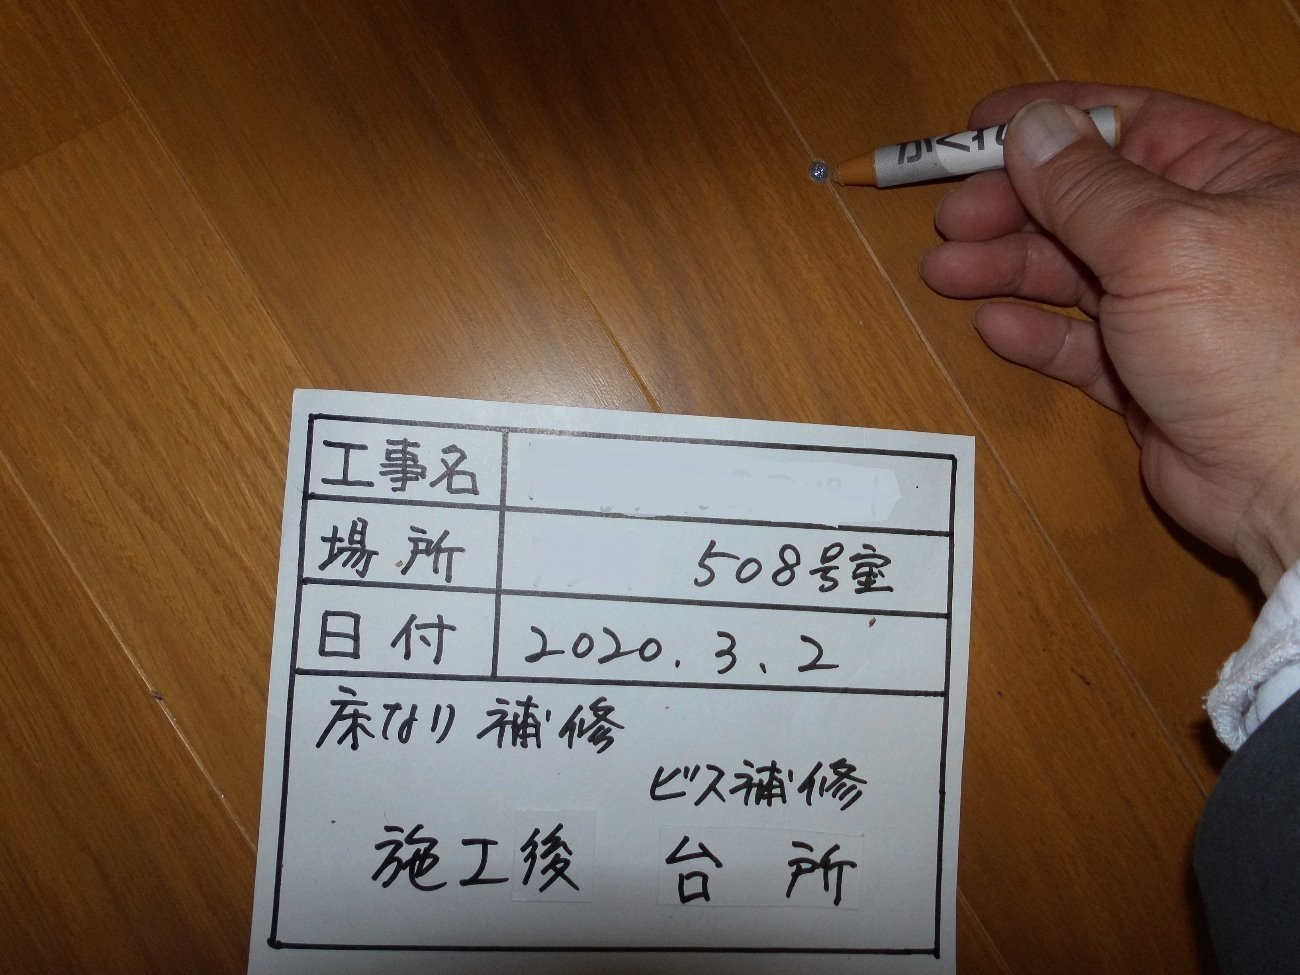 かくれ
工事名
場所 508号室
日付 2020.3.2
床なり補修
ビス補修
施工後 台所